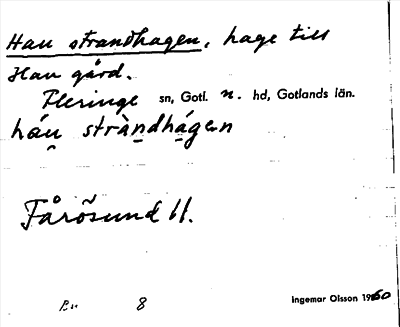 Hau strandhagen, hage till
Hau gård.
Fleringe sn, Gotl. n. hd, Gotlands län.
háu̯ stràndhágen
Fårösund 11.
8
Ingemar Olsson 1960